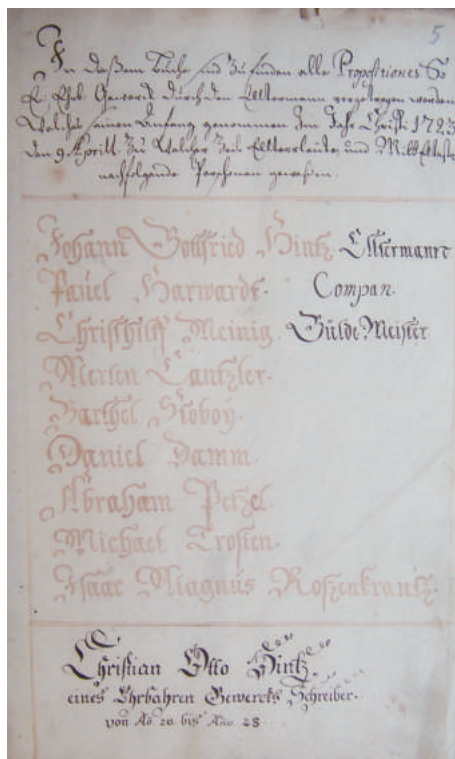 5
In dießem Buche sind zu finden alle Propositiones So
E. Ehrb. Gewerck durch den Eltermann vorgetragen worden
Welches seinen Anfang genommen Im Jahr Christi 1723
den 9 Aprill. Zu Welcher Zeit Eltterleüte, und
nachfolgende Persohnen geweßen.
Johann Gottfried Hintz Eltermann
Paüel Harwardt. Compan.
Meinig. Gülde Meister
Merten Cantzler.
Barthel Stoboÿ.
Daniel Damm.
Abraham Petzel.
Michael Trosien.
Isaac Magnüs Roszenkrantz.
Christian Otto Hintz
eines Ehrbahren Gewercks Schreiber.
von Ao. 20 bis Ano. 28